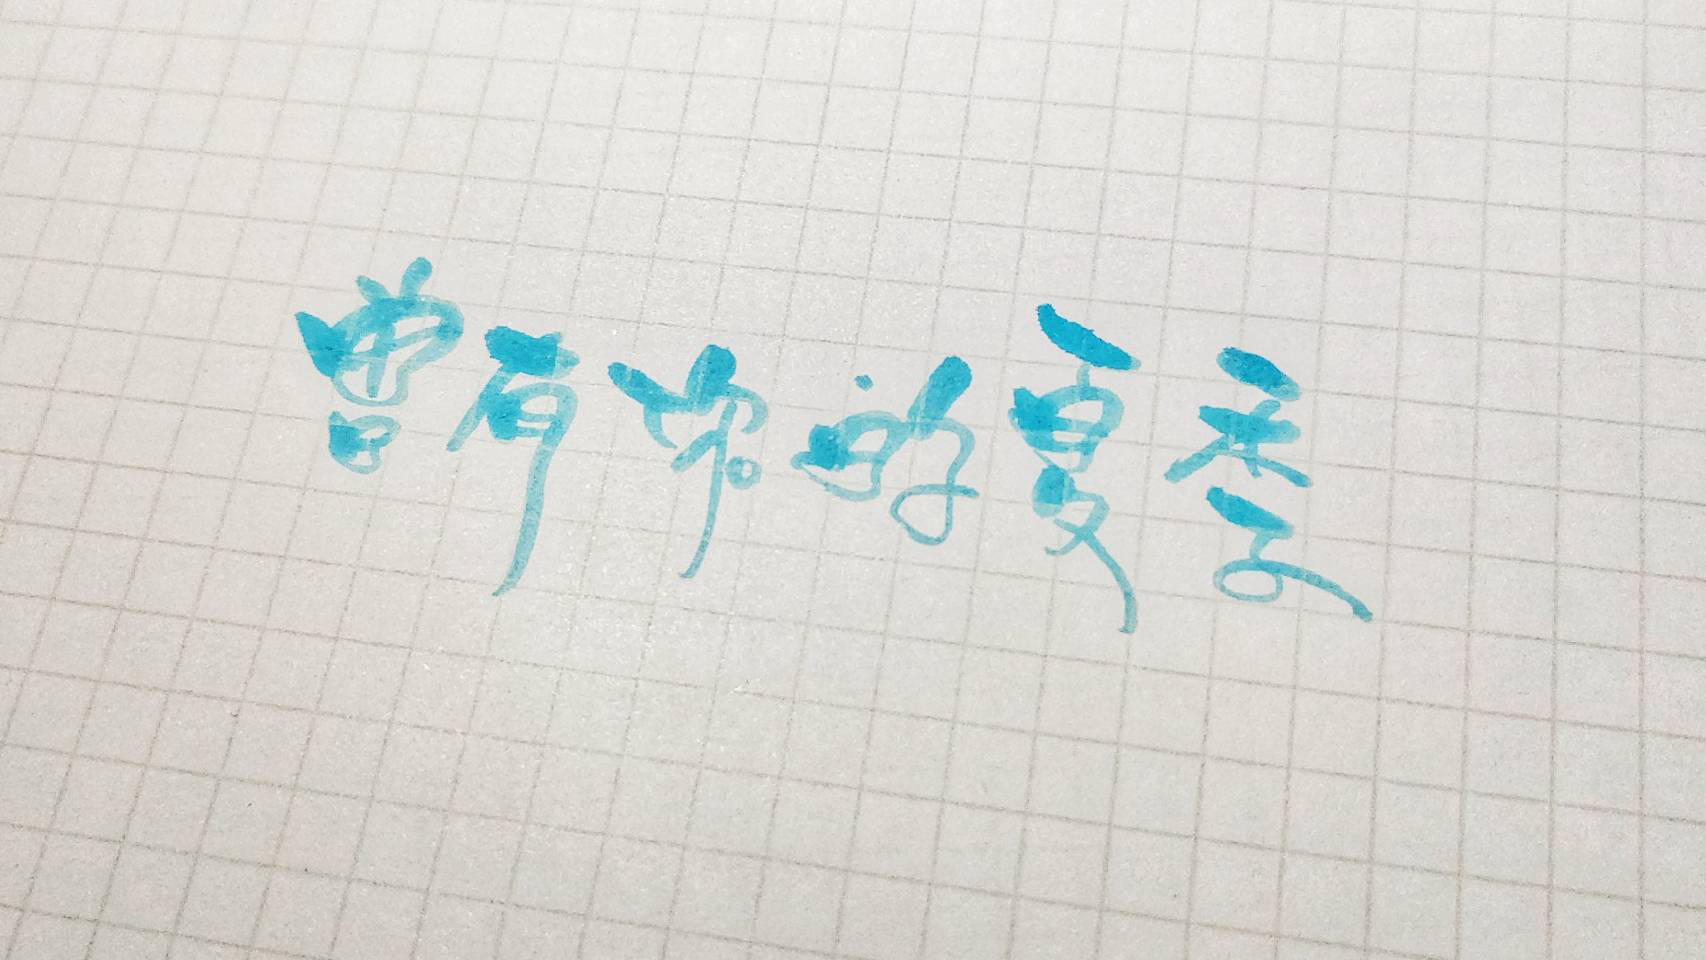 曾有妳的夏季